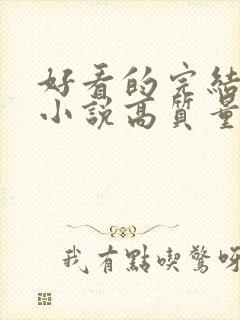 好看的完結
小說高質量
我有點喫驚呀